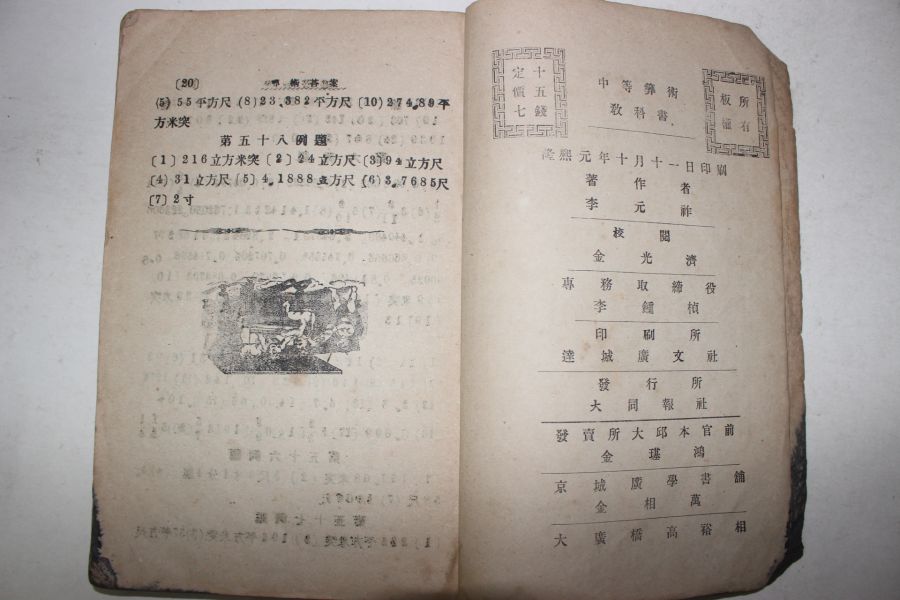 (20) 算術答案
(5) 55平方尺 (8) 23.382平方尺 (10) 274.89平
方米突
第五十八例題
(1) 216立方米突 (2) 24立方尺 (3) 94立方尺
(4) 31立方尺 (5) 4.1888立方尺 (6) 3.7685尺
(7) 2寸
定價七
十五錢
中等算術
敎科書
板權
所有
隆熙元年十月十一日印刷
著作者
李元祚
校閱
金光濟
專務取締役
李鍾楨
印刷所
達城廣文社
發行所
大同報社
發賣所大邱本官前
金璂鴻
京城廣學書舖
金相萬
大廣橋高裕相